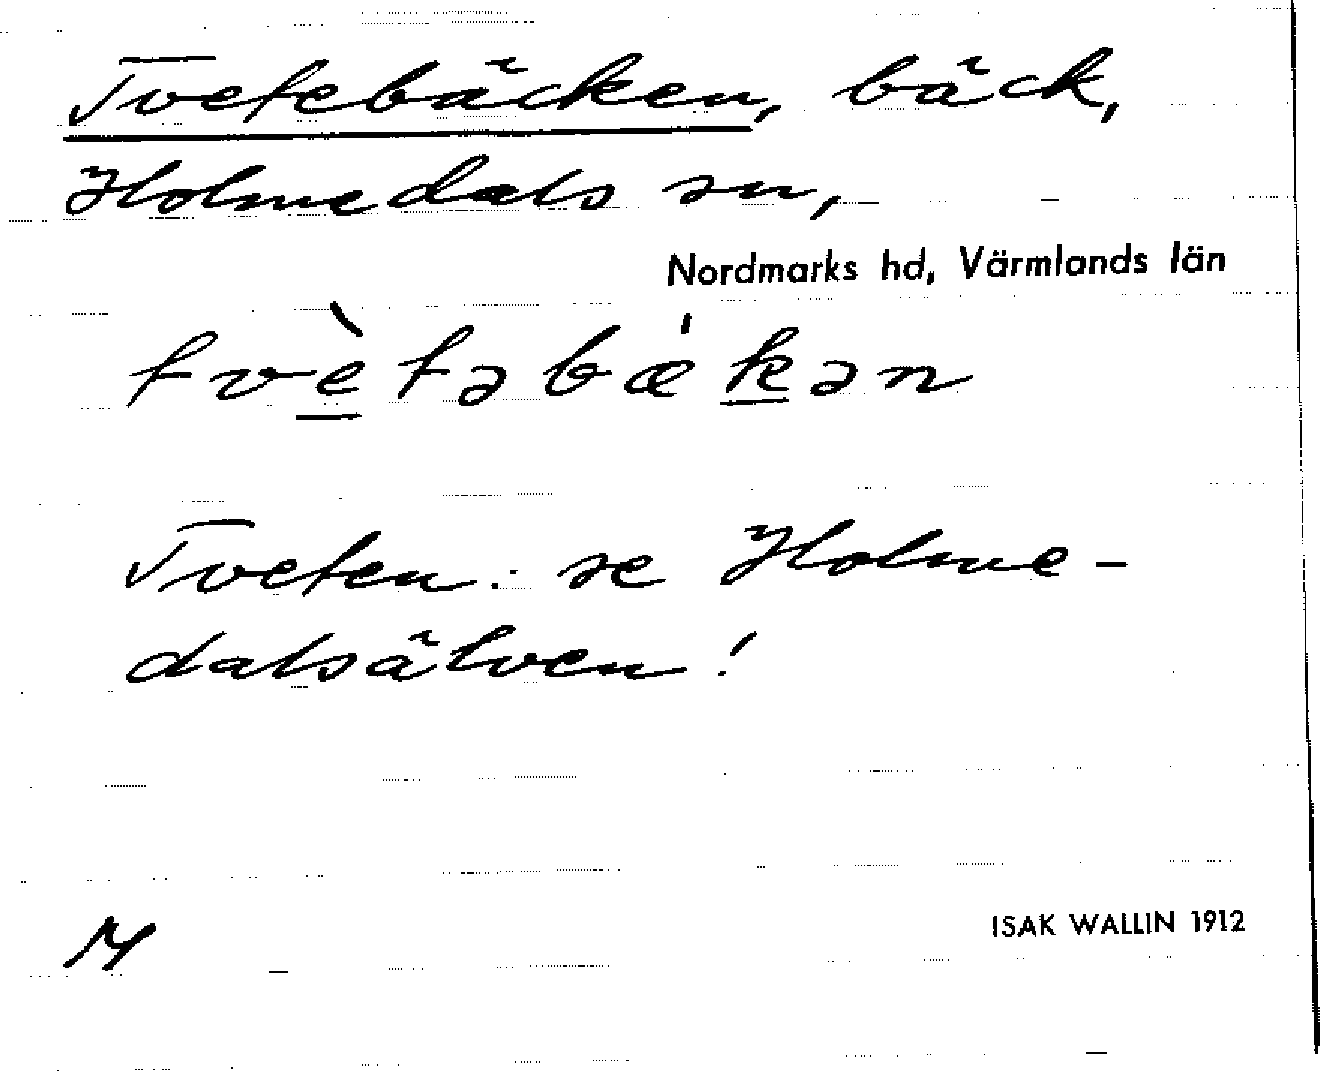 Tvetebäcken, bäck,
Holmedals sn,
Nordmarks hd, Värmlands län
tvètəbæ'kən
Tveten: se Holme-
dalsälven!
M
ISAK WALLIN 1912